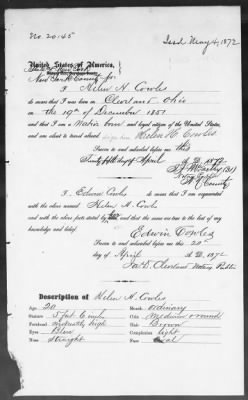 No. 20145
Issd May 4, 1872
United States of America,
State of New York
New York County for
I Helen H. Cowles
do swear that I was born in Cleveland Ohio
on the 19th of December 1851
that I am a Native born and loyal citizen of the United States,
and am about to travel abroad
Helen H. Cowles
Sworn to and subscribed before me this
day of April A.D. 1872
N.Y. County
I Edwin Cowles do swear that I am acquainted
with the above named Helen H. Cowles
and with the above facts stated by her and that the same are true to the best of my
knowledge and belief.
Edwin Cowles
Sworn to and subscribed before me this 20
day of April A.D. 1872
Jas. D. Cleveland Notary Public
Description of Helen H. Cowles
Age 20
Mouth ordinary
Stature 5 feet 6 inches
Chin medium round
Forehead high
Hair Brown
Eyes Blue
Complexion light
Nose Straight
Face Oval